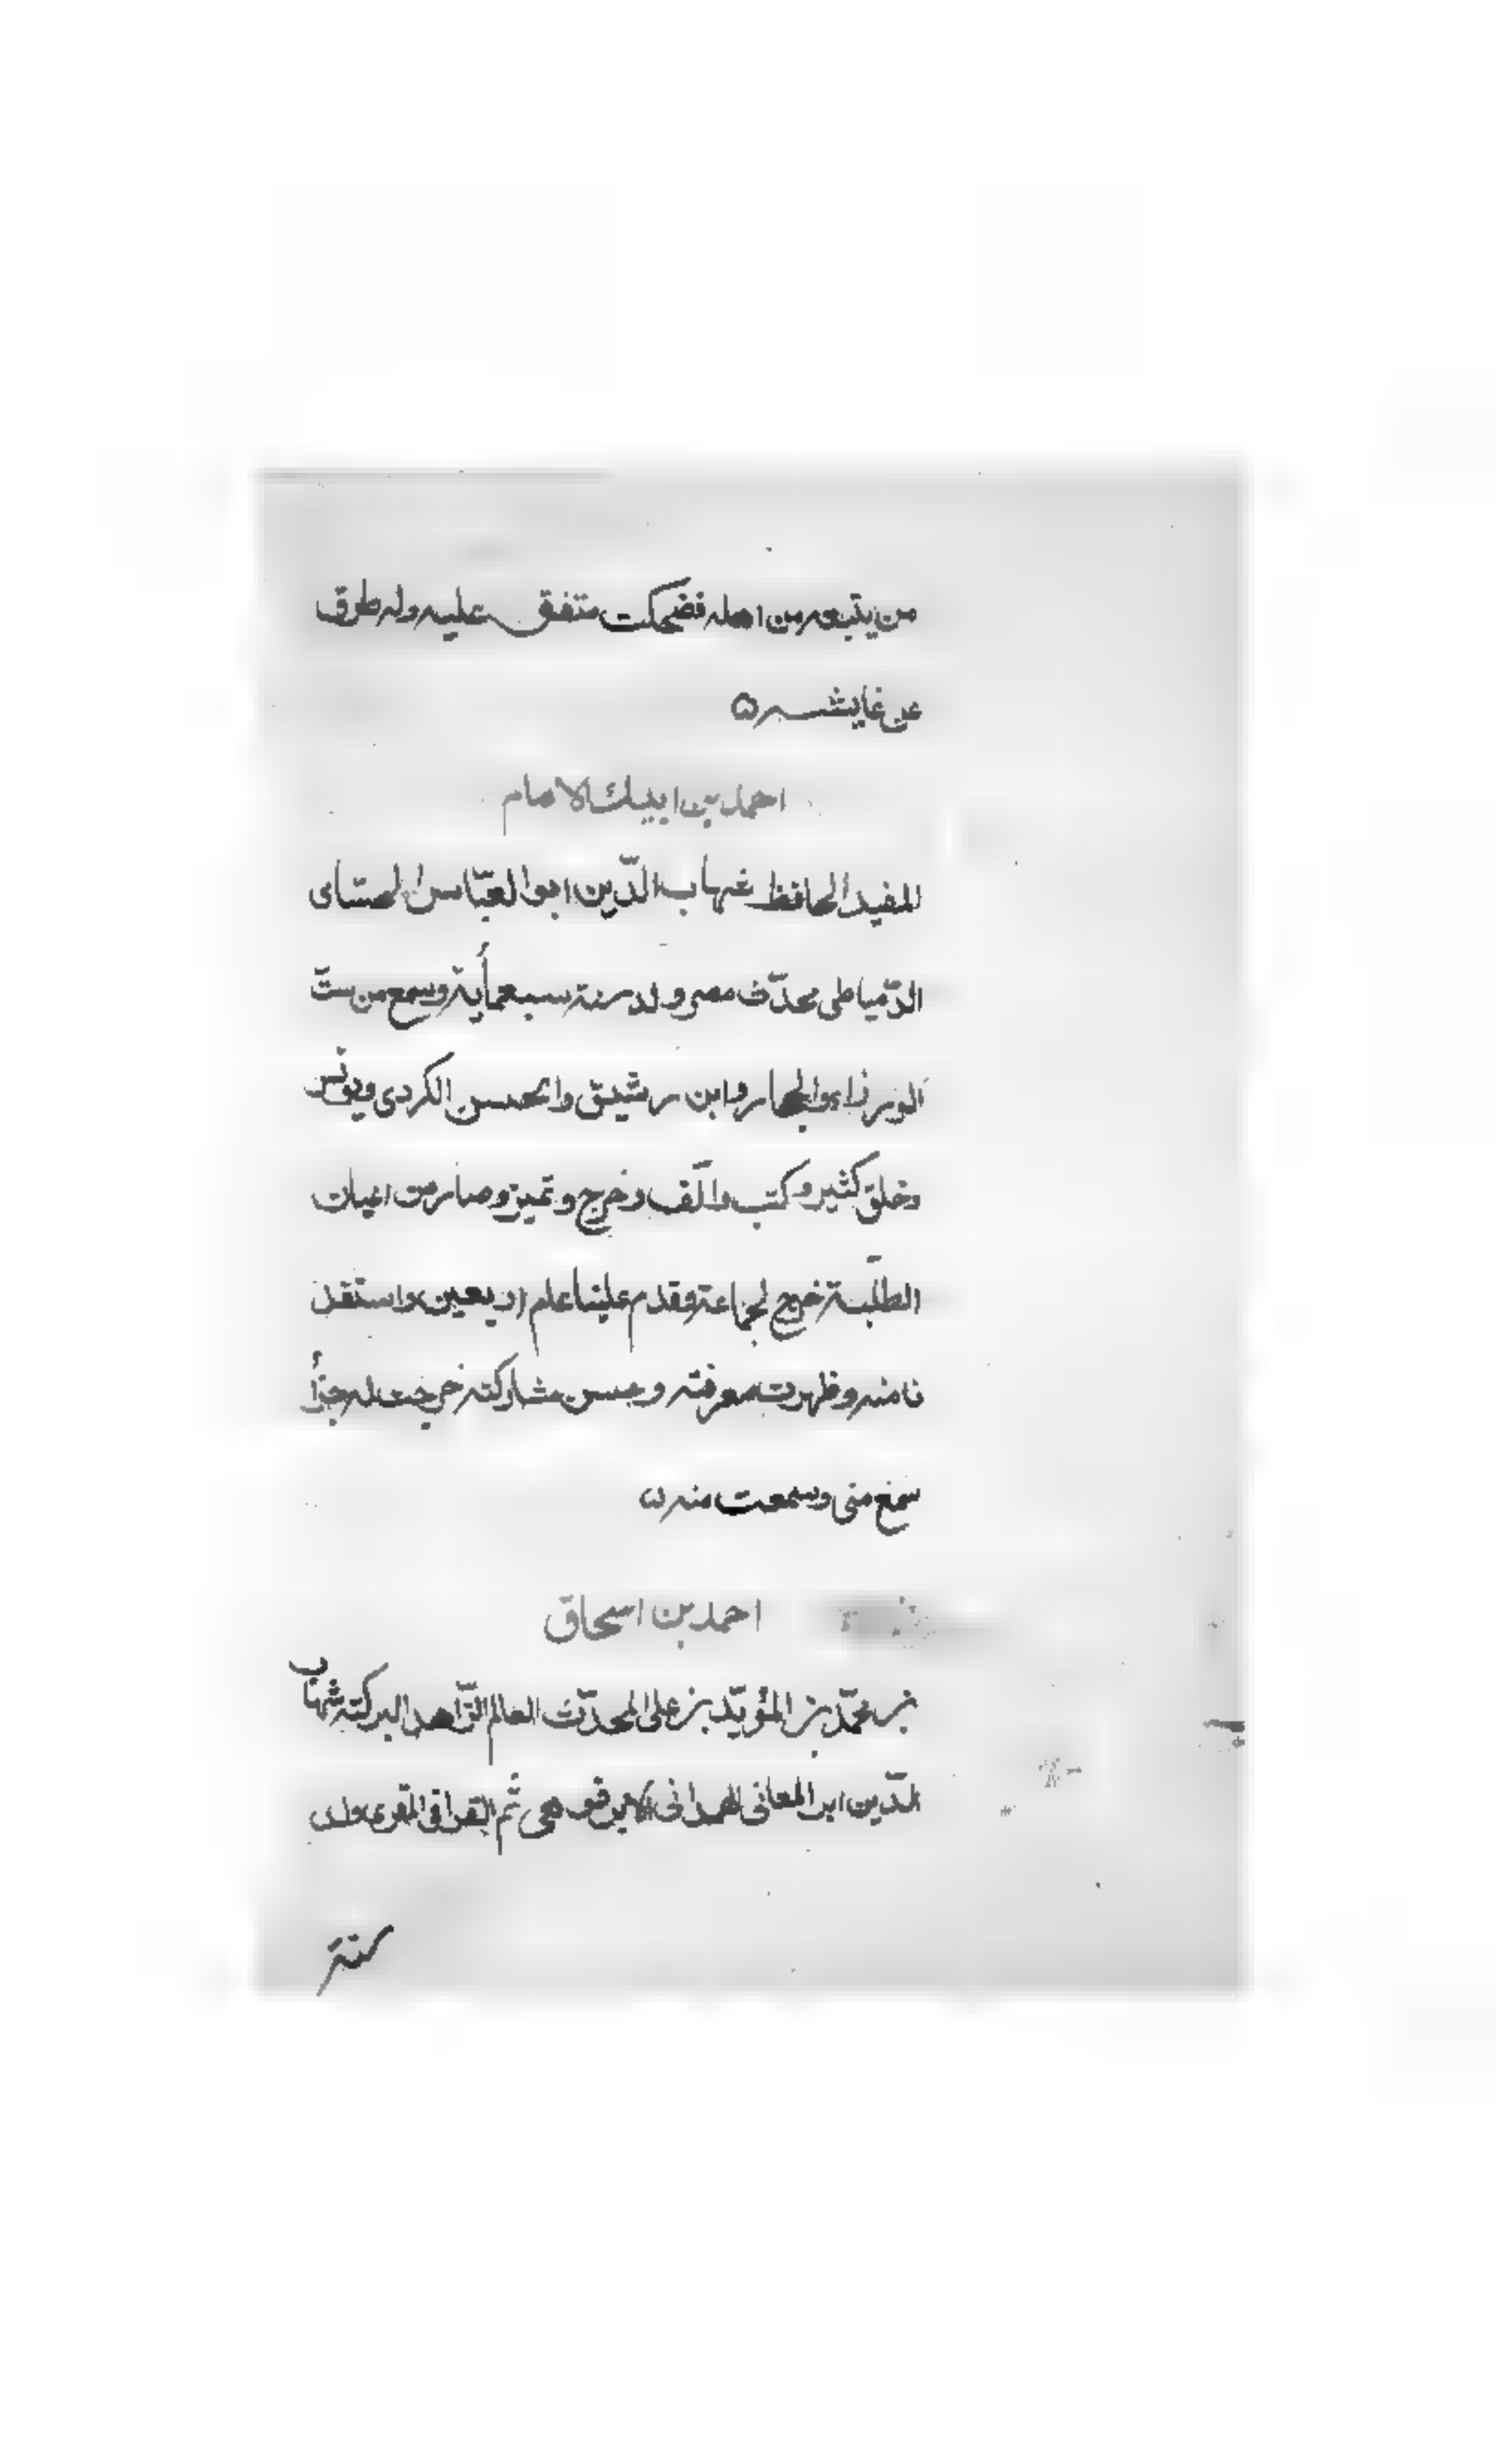 من يتبعه من اهله فضحكت متفق عليه وله طرق
عن عايشه ۵
احمد بن ايبك الامام
المفيد الحافظ شهاب الدّين ابو العبّاس الحسامى
الدّمياطى محدّث مصر ولد سنة سبعمأية وسمع من ستّ
الوزراء والحجار وابن رشيق والحسن الكردى ويونس
وخلق كثير وكتب والّف وخرج وتميز وصار من اعيان
الطلّبة خرج لجماعة وقدم علينا عام اربعين واستفد
نا منه وظهرت معرفته وحسن مشاركته خرجت له جزأ
سمع منى وسمعت منه ۵
احمد بن اسحاق
بن محمّد بن المؤيّد بن على المحدّث العالم الزّاهد البركة شهاب
الدّين ابو المعالى الهمدانى الابرقوهى ثم القرافى المقرى ولد
سنة